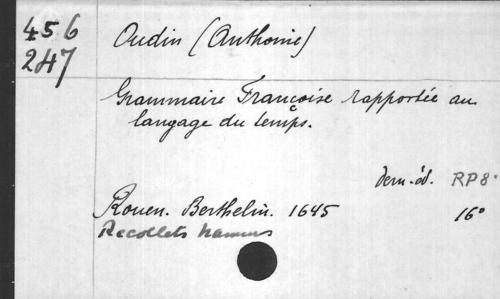 456
247
Oudin (Anthonie)
Grammaire Françoise rapportée au
langage du temps.
dern. éd. RP8°
Rouen. Berthelin. 1645 16°
Recollets Namur